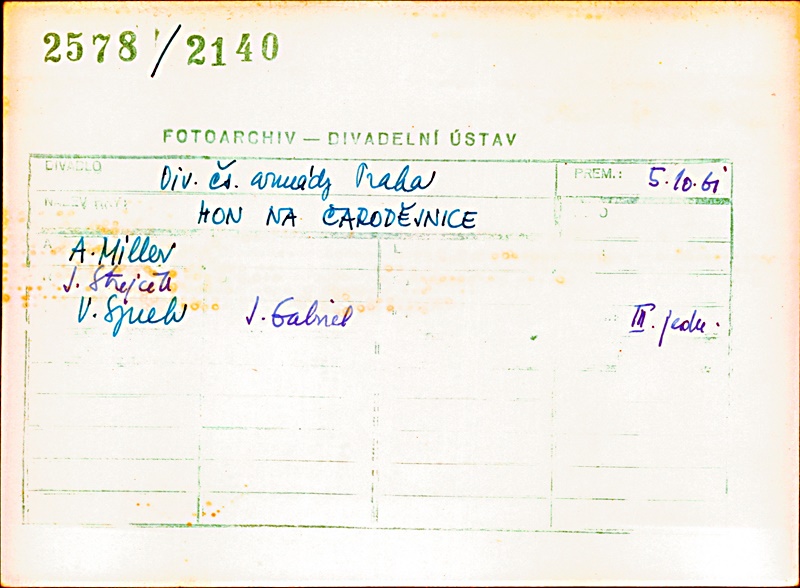 2578/2140
FOTOARCHIV — DIVADELNÍ ÚSTAV
DIVADLO Div. čs. armády Praha PREM.: 5.10.61
NÁZEV HRY: HON NA ČARODĚJNICE
A. Miller
J. Strejček
V. J. Gabriel III. jedn.